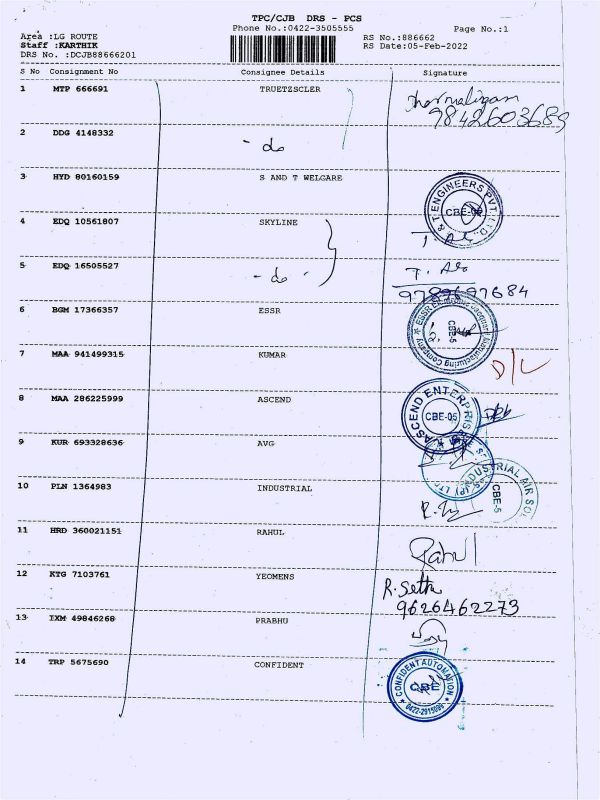 TPC/CJB DRS - PCS
Phone No.:0422-3505555 Page No.:1
Area :LG ROUTE RS No.:886662
Staff :KARTHIK RS Date:05-Feb-2022
DRS No. :DCJB88666201
S No Consignment No Consignee Details Signature
1 MTP 666691 TRUETZSCLER
9842603689
2 DDG 4148332 - do
3 HYD 80160159 S AND T WELCARE
S & T ENGINEERS PVT. LTD. CBE-09
4 EDQ 10561807 SKYLINE
5 EDQ 16505527 - do -
9789697684
6 BGM 17366357 ESSR
CBE-5
7 MAA 941499315 KUMAR D/C
8 MAA 286225999 ASCEND
ASCEND ENTERPRISES CBE-05
9 KUR 693328636 AVG
10 PLN 1364983 INDUSTRIAL
INDUSTRIAL AIR SOL CBE-5
11 HRD 360021151 RAHUL Rahul
12 KTG 7103761 YEOMENS R. Seth
9626462273
13 IXM 49846268 PRABHU
14 TRP 5675690 CONFIDENT
CONFIDENT AUTOMATION CBE 0422-2915099